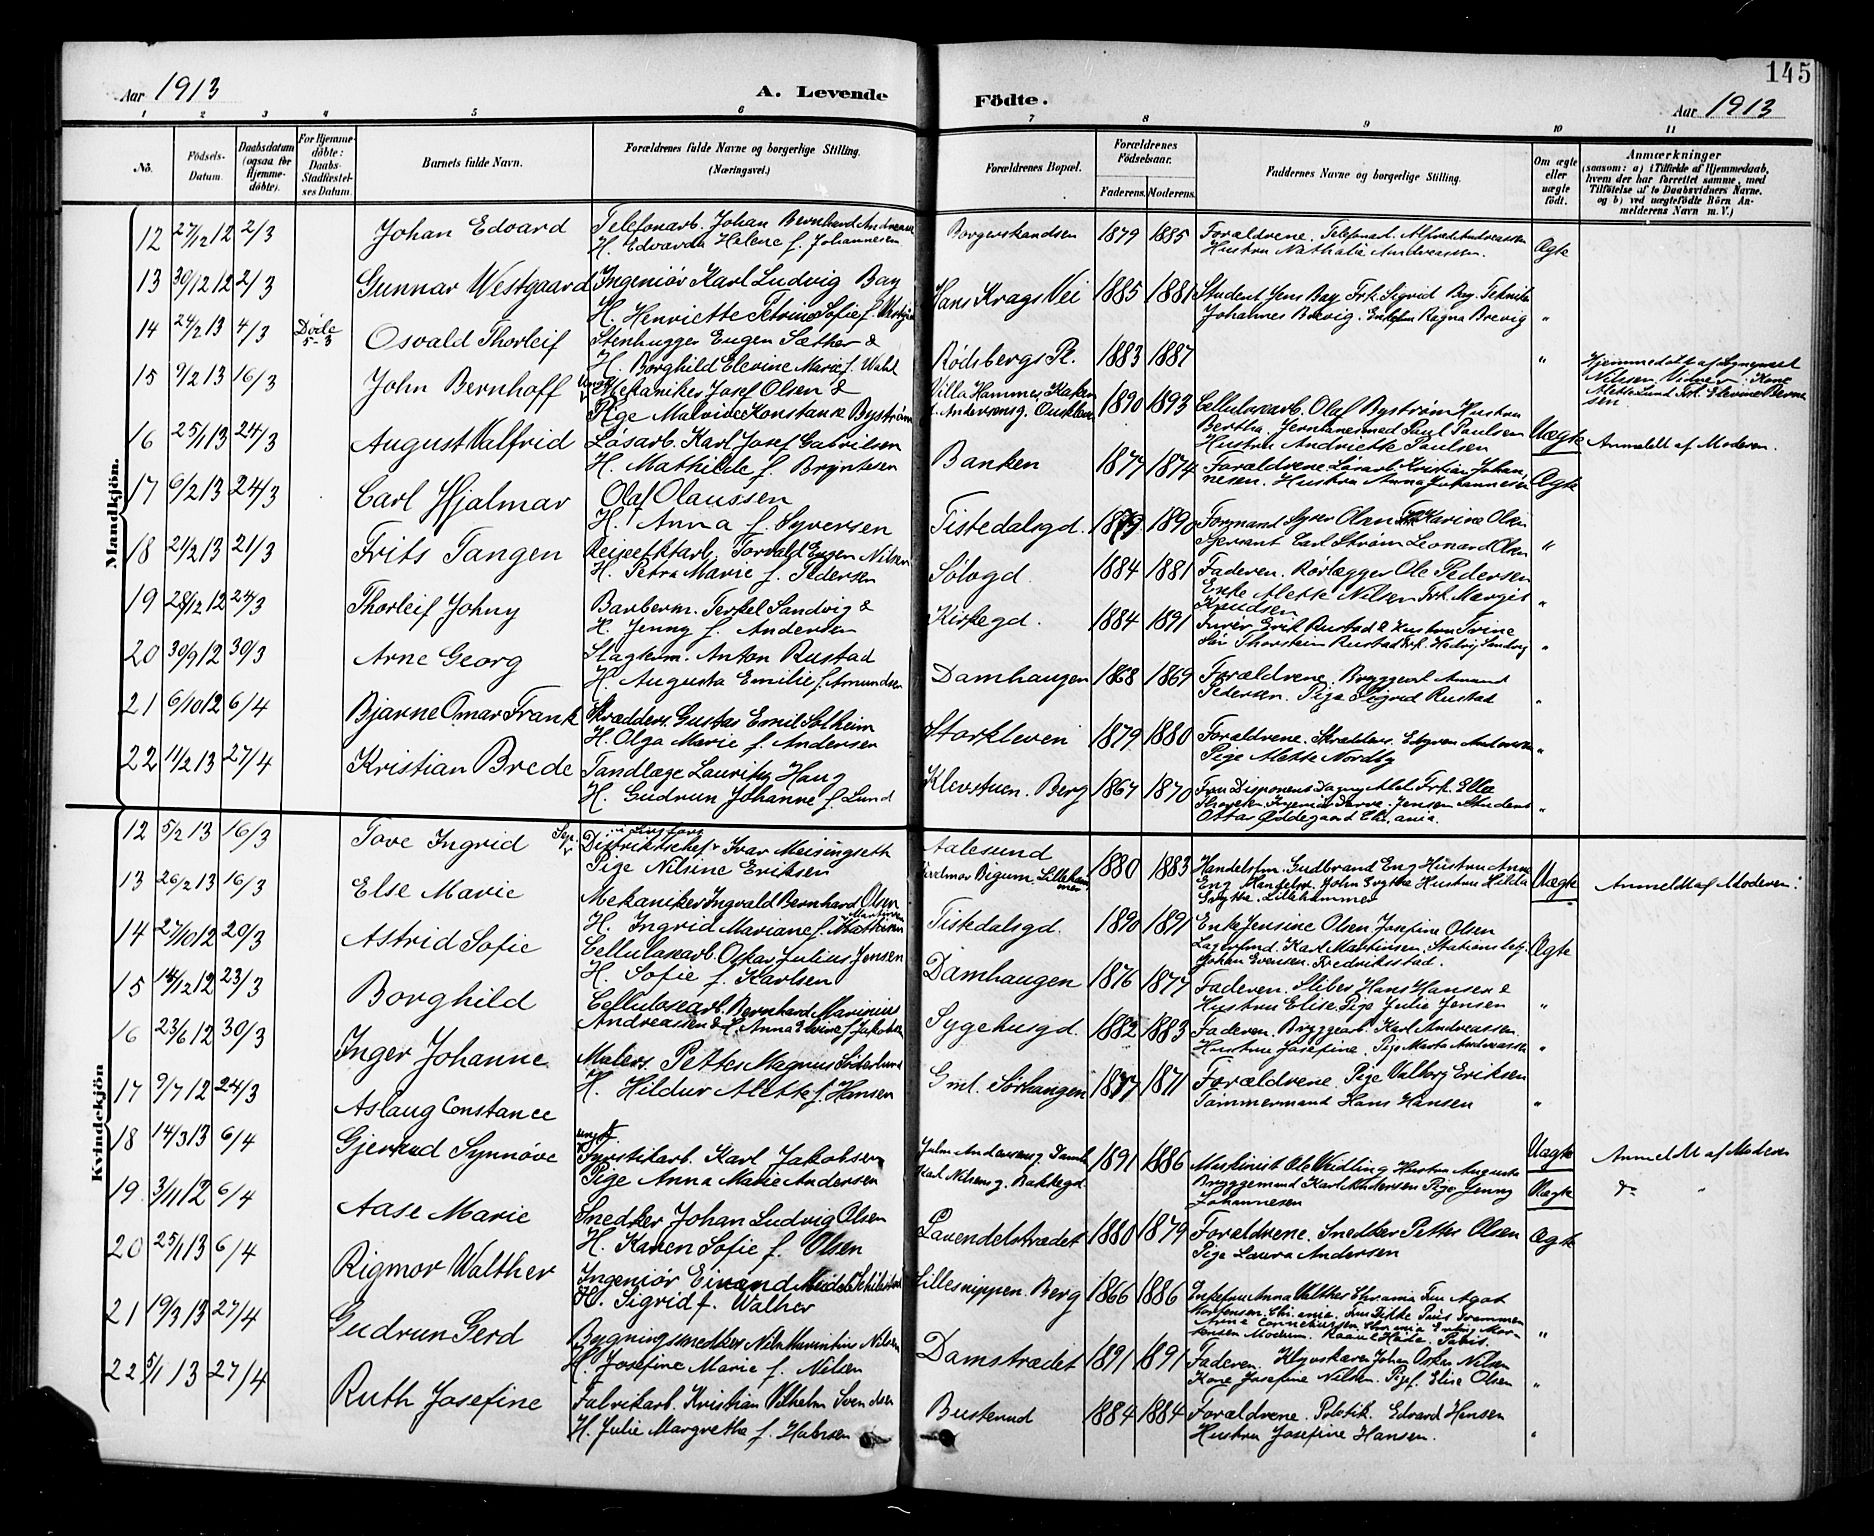 145
Aar 1913
A. Levende
Födte.
Aar 1913
1 2 3 4 5 6 7 8 9 10 11
No.
Födsels-
Datum.
Daabsdatum
(ogsaa for
Hjemme-
døbte).
For Hjemme-
døbte:
Daabs-
Stadfæstel-
ses Datum.
Barnets fulde Navn.
Forældrenes fulde Navne og borgerlige Stilling.
(Næringsvei.)
Forældrenes Bopæl.
Forældrenes
Födselsaar.
Faderens. Moderens.
Faddernes Navne og borgerlige Stilling.
Om ægte
eller
uægte
født.
Anmærkninger
(saasom: a) i Tilfælde af Hjemmedaab,
hvem der har forrettet samme, med
Tilföielse af to Daabsvidners Navne.
og b) ved uægtefödte Börn An-
melderens Navn m. V.)
Mandkjön.
12 27/12 12 2/3 Johan Edvard Telefonarb. Johan Bernhard Andreasen Borgerskandsen 1879 1885 Forældrene. Telefonarb. Alfred Andreassen Ægte
H. Edvarda Helene f. Johannesen Hustru Nathalie Andreassen.
13 30/12 12 2/3 Gunnar Westgaard Ingeniør Karl Ludvig Bay Hans Krags Vei 1885 1881 Student Jens Bay. Frk. Sigrid Bay.
H. Henriette Petrine Sofie f. Johannes Brevig. Ragna Brevig "
14 24/2 13 4/3 5-3 Osvald Thorleif Stenhugger Eugen Sæther & Rødsbergs Pl. 1883 1887 "
H. Borghild Elevine Marie f. Wahl Hjemmedøbt af
15 9/2 13 16/3 John Bernhoff Mekaniker Josef Olsen & Villa Hammer 1890 1893 Cellulosearb. Olaf Byström Hustru
Pige Malvide Konstanse Byström Bertha. Jernbanemand Paul Paulsen Uægte Anmeldt af Moderen.
Hustru Andriette Paulsen
16 25/1 13 24/3 August Valfrid Løsarb. Karl Josef Gabrielsen Banken 1877 1874 Forældrene Løsarb. Kristian Johan-
H. Mathilde f. Bryntesen nesen. Hustru Anna Johannesen Ægte
17 6/2 13 24/3 Carl Hjalmar Olaf Olaussen Tistedalsgd. 1879 1890 Formand Syver Olsen Karine Olsen
H. Anna f. Syversen Sjersant Carl Strøm Leonard Olsen "
18 21/2 13 21/3 Frits Tangen Torvald Eugen Nilsen Sølvgd. 1884 1881 Faderen. Rørlægger Ole Pedersen
H. Petra Marie f. Pedersen Enke Alette Nilsen Frk. Margit "
Knudsen
19 28/12 12 24/3 Thorleif Johny Barberm. Terkel Sandvig & Kirkegd. 1884 1891 Erik Rustad & Hustru Trine
H. Jenny f. Andersen Thorstein Rustad Frk. Hedvig Sandvig "
20 30/9 12 30/3 Arne Georg Slagterm. Anton Rustad Damhaugen 1868 1869 Forældrene. Bryggearb. Amund
H. Augusta Emilie f. Amundsen Pedersen. Pige Sigrid Rustad "
21 6/10 12 6/4 Bjarne Omar Frank Skrædders. Gustav Emil Solheim Storkleven 1879 1880 Forældrene. Skrædders.
H. Olga Marie f. Andersen Pige Alette Nordby "
22 11/2 13 27/4 Kristian Brede Tandlæge Lauritz Haug Klevstuen. Berg 1867 1870 Fru Disponent Dagny
H. Gudrun Johanne f. Lund Jensen Student
Ottar Øddegaard Chr.ania. "
Kvindekjön
12 5/2 13 16/3 Tove Ingrid Distriktschef Ivar Meisingseth Aalesund 1880 1883 Handelsfm. Gudbrand Eng Hustru Anne
Pige Nilsine Eriksen Lillehammer Eng John Hustru Hilda Uægte Anmeldt af Moderen.
Lillehammer
13 26/2 13 16/3 Else Marie Mekaniker Ingvald Bernhard Olsen Tistedalsgd. 1890 1891 Enke Jensine Olsen Josefine Olsen
H. Ingrid Mariane f. Martinsen Karl Martinsen. Ægte
Johan Evensen. Fredriksstad.
14 27/10 12 20/3 Astrid Sofie Cellulosearb. Oskar Julius Jensen Damhaugen 1876 1877 Faderen. Sliber Hans Hansen &
H. Sofie f. Karlsen Hustru Elise Pige Julie Jensen "
15 14/12 12 23/3 Borghild Cellulosearb. Bernhard Marinius Sygehusgd. 1882 1883 Faderen. Bryggearb. Karl Andreassen
Andreassen & H. Anna f. Jakobsen Hustru Josefine. Pige Marta Andreassen "
16 23/6 12 30/3 Inger Johanne Malers. Petter Magnus Söderlund Gml. Sørhaugen 1877 1871 Forældrene. Pige Valborg Eriksen
H. Hildur Alette f. Hansen Tømmermand Hans Hansen "
17 9/7 12 24/3 Aslaug Constance
18 14/3 13 6/4 Gjertrud Synnøve Fyrstikarb. Karl Jakobsen 1891 1886 Maskinist Ole Hustru Augusta Uægte Anmeldt af Moderen
Pige Anna Marie Andersen Karl Nilsens g. Bakkegd. Bryggemand Karl Andersen Pige Jenny Uægte do "
Johannesen
19 3/11 12 6/4 Aase Marie Snedker Johan Ludvig Olsen Lavendelstrædet 1880 1879 Forældrene. Snedker Petter Olsen Ægte
H. Karen Sofie f. Olsen Pige Laura Andersen
20 25/1 13 6/4 Rigmor Walther Ingeniør Lillesnippen. Berg 1866 1886 Enkefru Anna Walther Chrania Fru Agot
H. Sigrid f. Walther Mortensen. Chr.ania.
"
21 19/3 13 27/4 Gudrun Gerd Bygningssnedker Nils Nilsen Damstrædet 1891 1891 Faderen. Johan Oskar Nilsen
H. Josefine Marie f. Nilsen Kone Josefine Nilsen. Pige Elise Olsen "
22 5/1 13 27/4 Ruth Josefine Fabrikarb. Kristian Vilhelm Svendsen Busterud 1884 1884 Forældrene. Politik. Edvard Hansen
H. Julie Margrethe f. Halvorsen Hustru Josefine Hansen. "